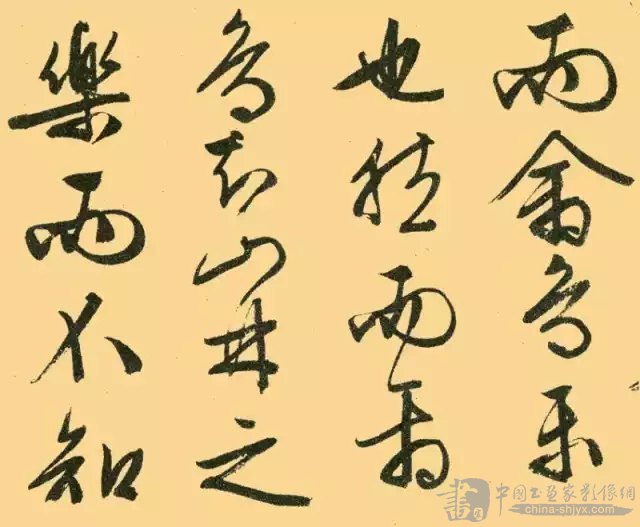 而禽鸟乐
也然而禽
鸟知山林之
樂而不知
書 中国书画家影像網
china-shjyx.com